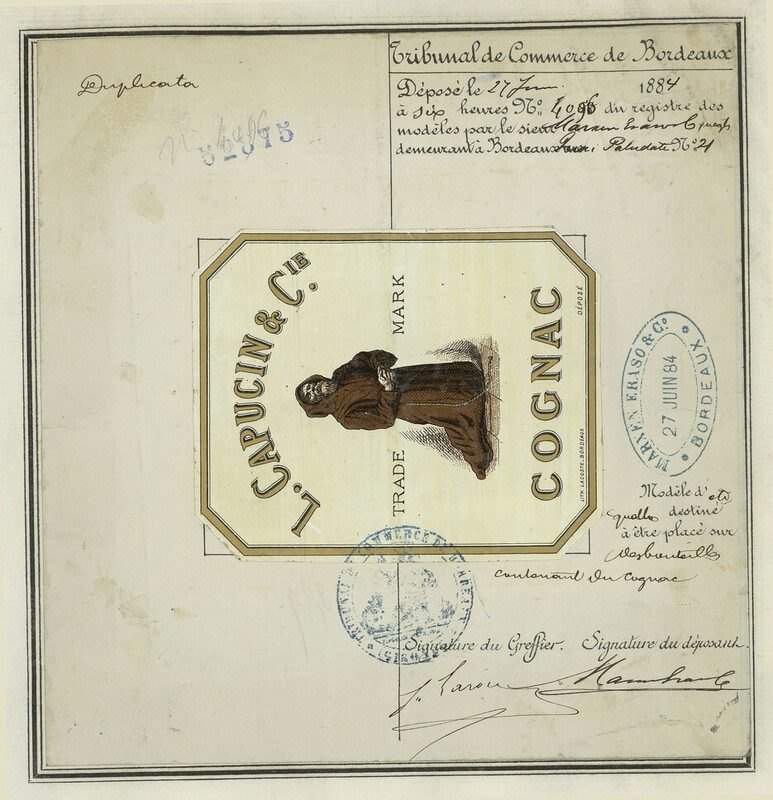 Duplicata
52375
Tribunal de Commerce de Bordeaux
Déposé le 27 Juin 1884
à six heures No. du registre des
modèles par le sieur
demeurant à Bordeaux Paludate No. 21
L. CAPUCIN & CIE
TRADE MARK
COGNAC
DÉPOSÉ
LITH. LACOSTE, BORDEAUX
MARXEN ERASO & Co.
27 JUIN 84
BORDEAUX
Modèle d'éti
quette destiné
à être placé sur
des bouteilles
contenant du Cognac
TRIBUNAL DE COMMERCE DE BORDEAUX
Signature du Greffier. Signature du déposant.